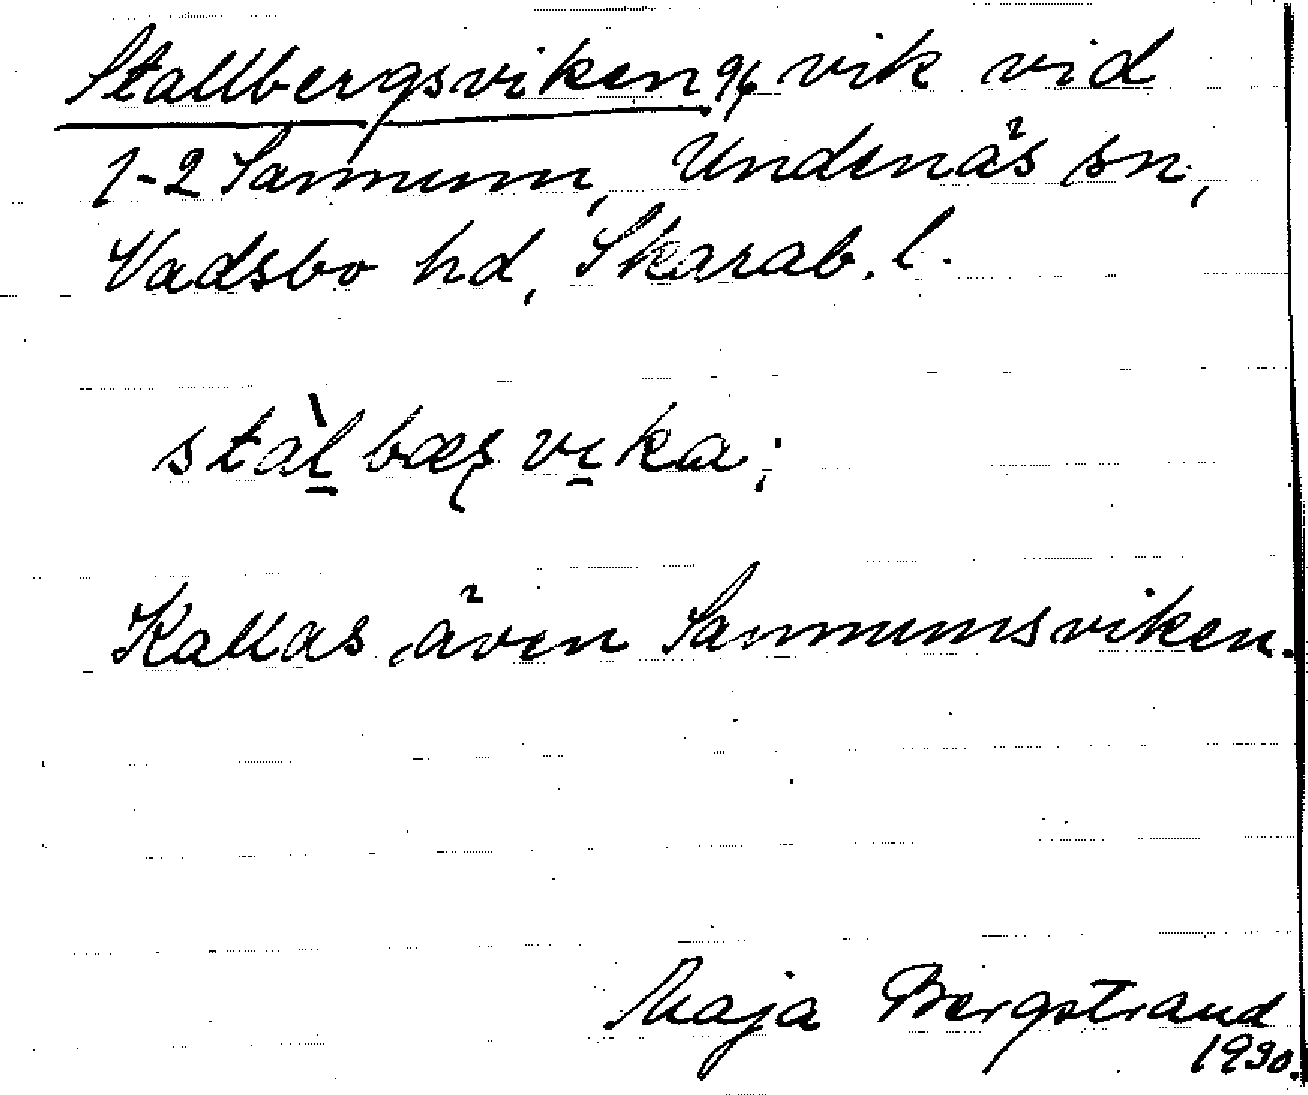 Stallbergsviken 9/6 vik vid
1-2 Sannum, Undenäs sn,
Vadsbo hd, Skarab. l.
stàl bæş vika;
Kallas även Sannumsviken.
Maja Bergstrand
1930.